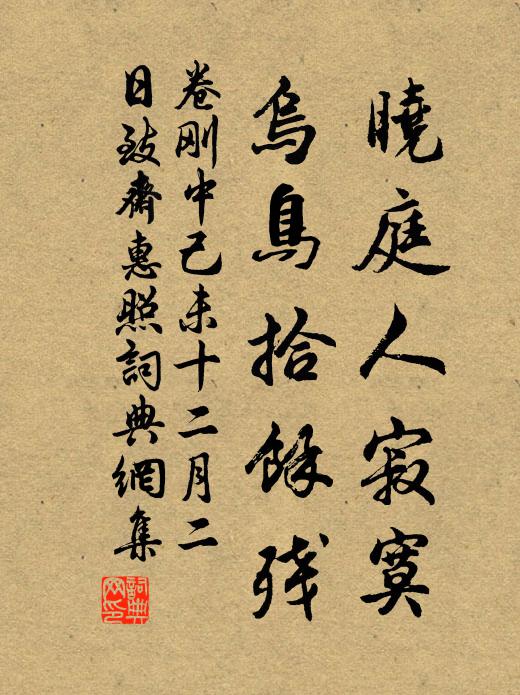 曉庭人寂寞
烏鳥拾餘殘
卷剛中己未十二月二
日致齋惠照詞典網集
詞典网印